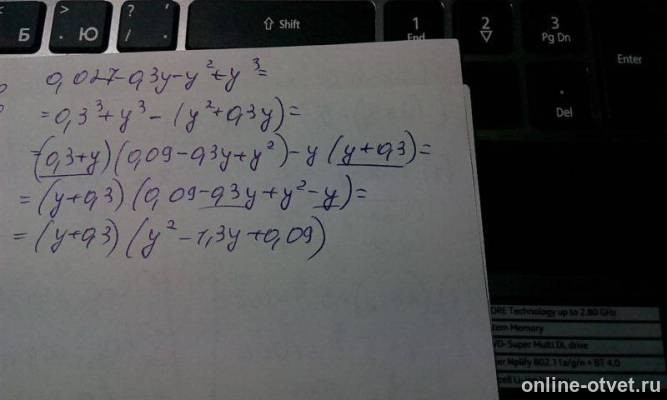 Б
>
.
Ю
?
/
.
⇧ Shift
1
End
2
3
Pg Dn
Enter
.
Del
0,027-0,3y-y²+y³=
=0,3³+y³-(y²+0,3y)=
=(0,3+y)(0,09-0,3y+y²)-y(y+0,3)=
=(y+0,3)(0,09-0,3y+y²-y)=
=(y+0,3)(y²-1,3y+0,09)
ORE Technology up to 2.80 GHz
tem Memory
VD- Super Multi DL drive
802.11a/g/n + BT 4.0
online-otvet.ru